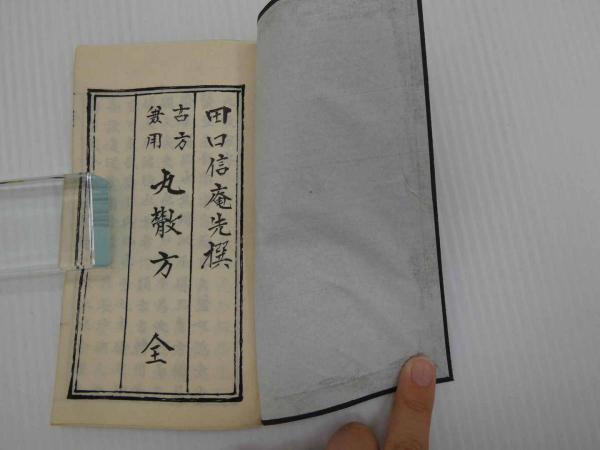 田口信庵先撰
古方
兼用
丸散方 全